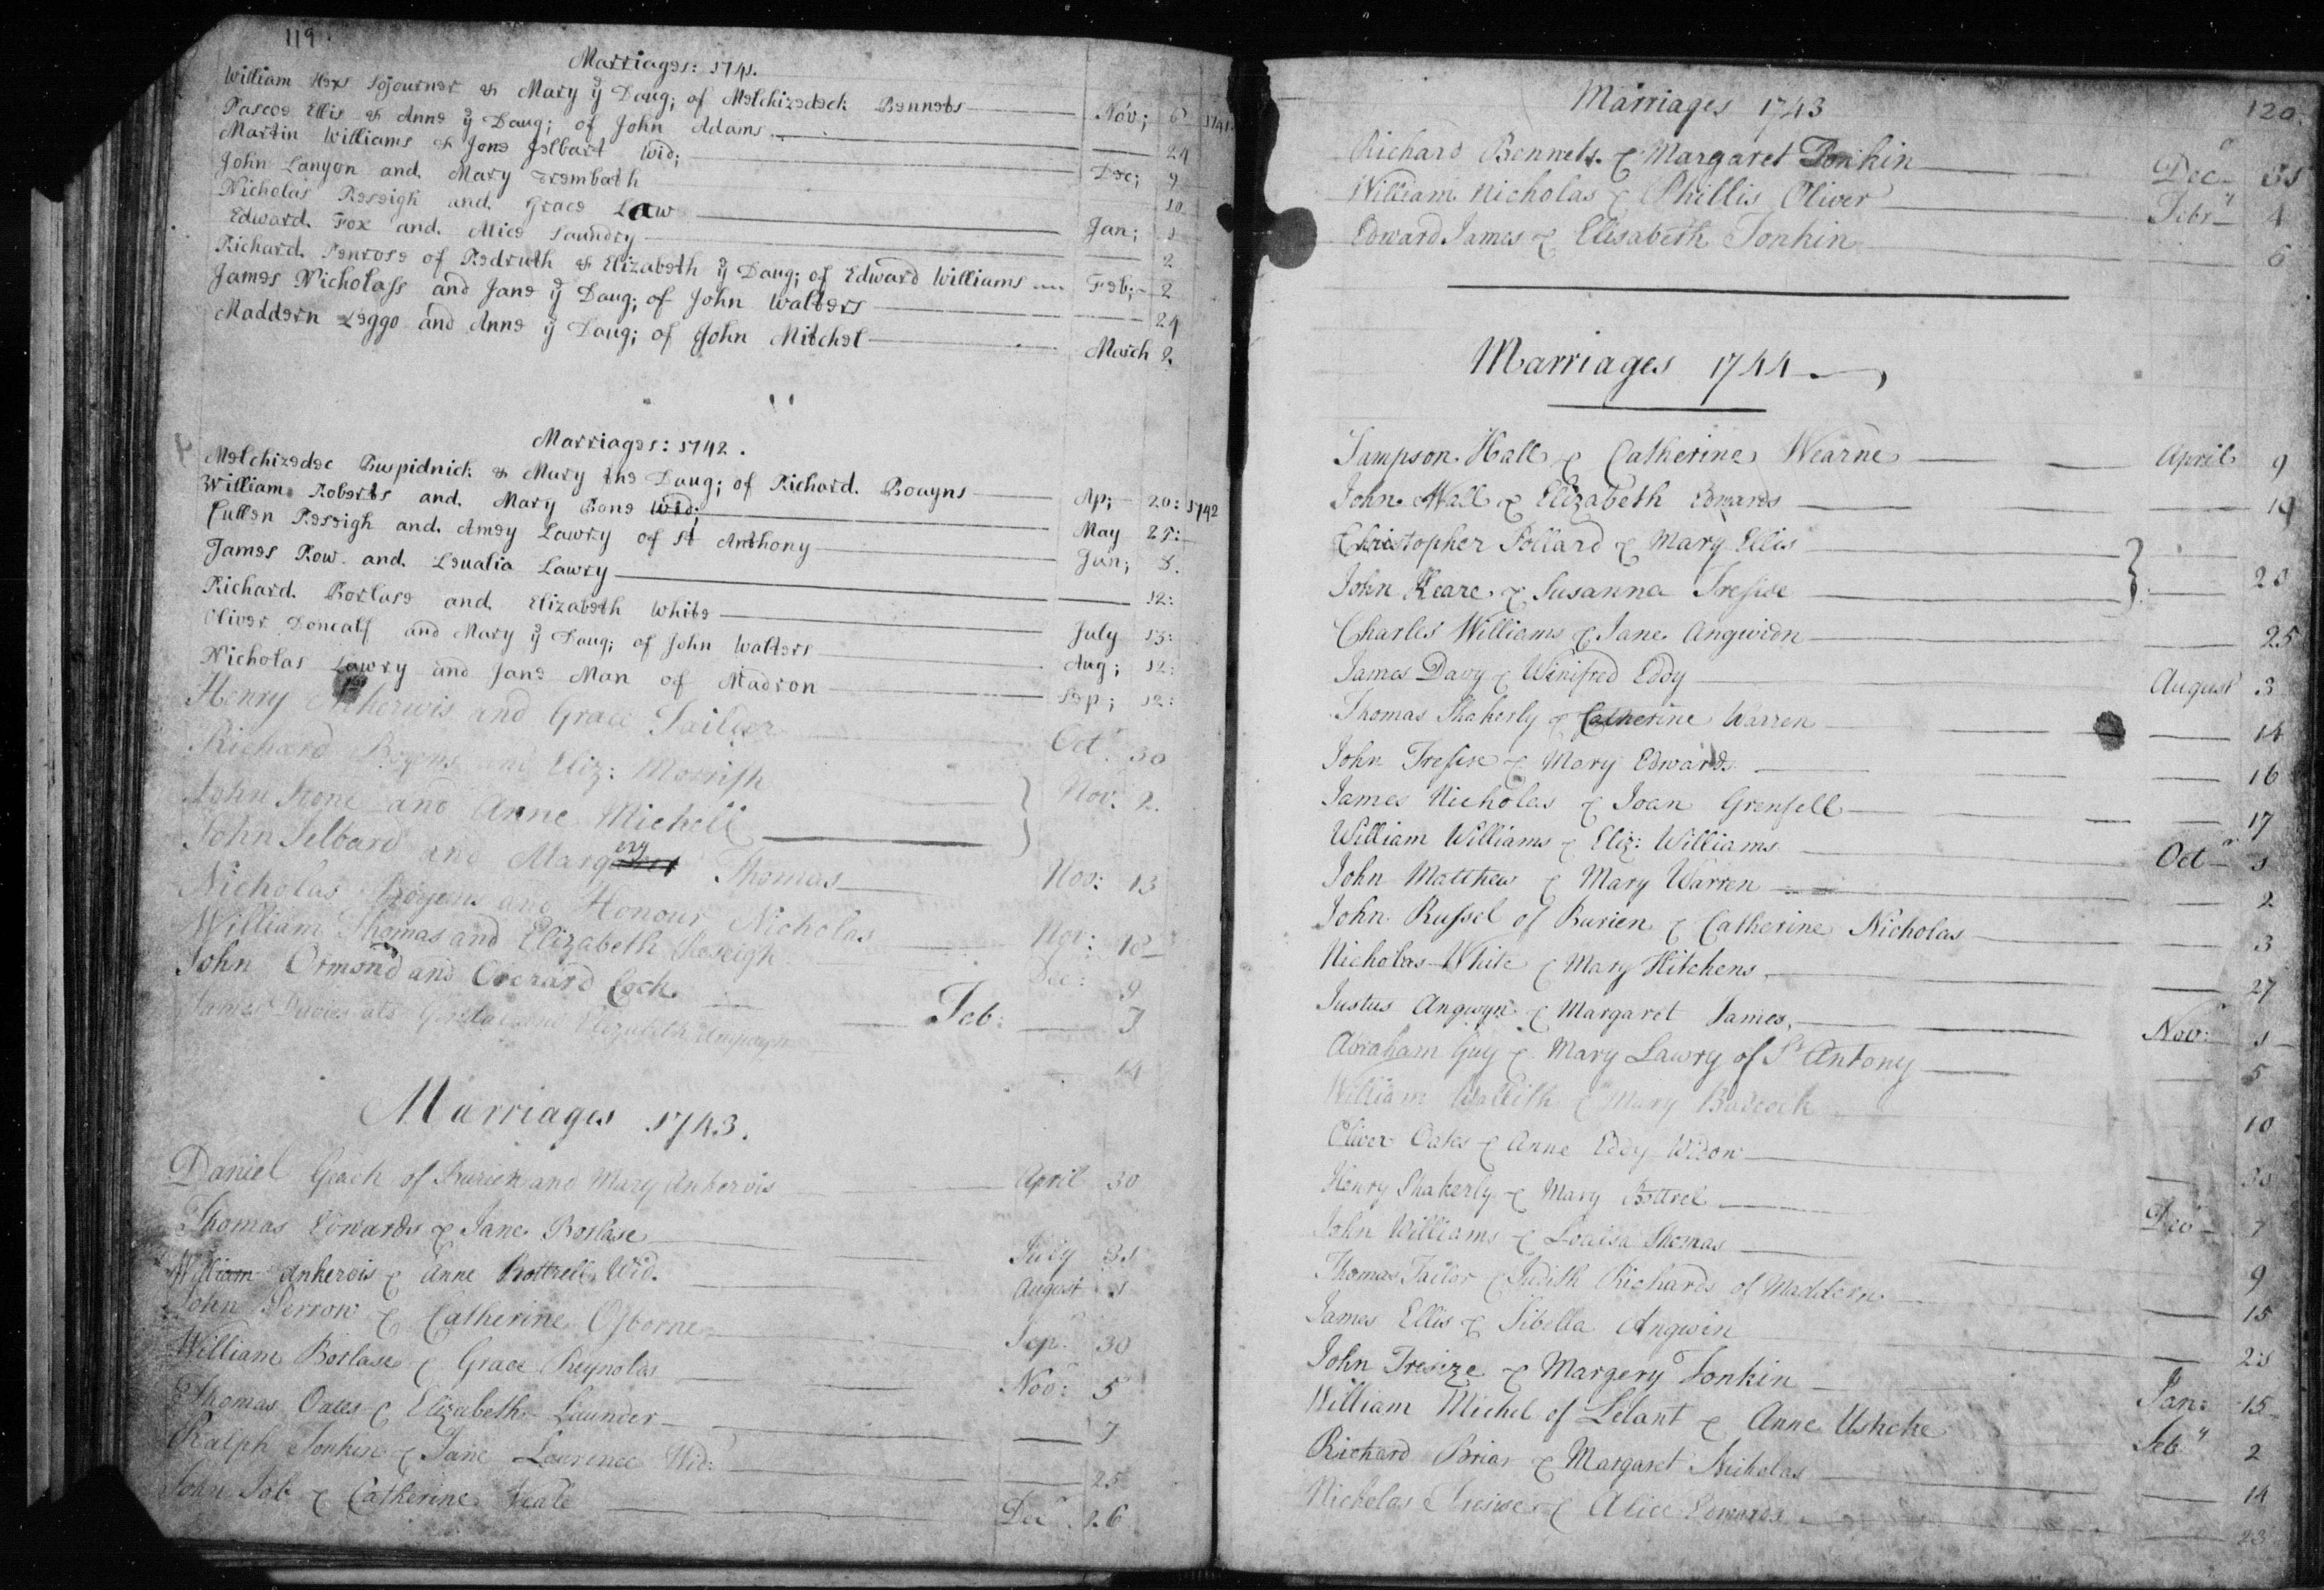 119.
Marriages: 1741.
William Hexs Sojourner & Mary ye Daug; of Melchizedeck Bennets Nov; 6 1741.
Pascoe Ellis & Anne ye Daug; of John Adams. 24
Martin Williams & Jone Jelbart Wid; Dec; 9
John Lanyon and. Mary Trembath 10
Nicholas Reseigh and. Grace Law Jan; 1
Edward. Fox and. Alice Saundry 2
Richard. Penrose of Redruth & Elizabeth ye Daug; of Edward Williams Feb; 2
James Nicholass and Jane ye Daug; of John Walters 24
Maddern Leggo and Anne ye Daug; of John Mitchel March 2.
Marriages: 1742.
Melchizedec Buspidnick & Mary the Daug; of Richard. Boayns Ap; 20: 1742
William Roberts and. Mary Bone Wid; May 25:
Cullen Reseigh and. Amey Lawry of St Anthony Jun; 8.
James Row. and. Leualia Lawry 12:
Richard. Borlase and. Elizabeth White July 15:
Oliver Doncalf and Mary ye Daug; of John Walters Aug; 12:
Nicholas Lawry and Jane Man of Madron Sep; 12:
Henry and Grace Tailder Oct. 30
Richard and Eliz: Morrish Nov. 2.
John Stone and Anne Michell
John Jelbard and Margery Thomas Nov: 13
Nicholas Boyens and Honour Nicholas Nov: 18
William Thomas and Elizabeth Reseigh Dec: 9
John Ormond and Cock Feb: 7
James Davies and Elizabeth 14
Marriages 1743.
Daniel Geach of Burien and Mary Ankervis April 30
Thomas Edwards & Jane Borlase July 31
William Ankervis & Anne Bottrell Wid. August 1
John Perrow & Catherine Osborne Sepr. 30
William Borlase & Grace Reynolds Nov: 5
Thomas Oates & Elizabeth Launder 7
Ralph Tonkin & Jane Lawrence Wid: 25
John Job & Catherine Veale Decr. 26
Marriages 1743 120.
Richard Bennets & Margaret Tonkin Decr 31
William Nicholas & Phillis Oliver Febry 4
Edward James & Elisabeth Tonkin 6
Marriages 1744
Sampson Hall & Catherine Wearne April 9
John Wall & Elizabeth Edwards 19
Christopher Pollard & Mary Ellis
John Keare & Susanna Tresise 23
Charles Williams & Jane Angwidn 25
James Davy & Winifred Eddy August 3
Thomas Shakerly & Catherine Warren 14
John Tresise & Mary Edwards 16
James Nicholas & Joan Grenfell 17
William Williams & Eliz: Williams Octr 1
John Matthew & Mary Warren 2
John Russel of Burien & Catherine Nicholas 3
Nicholas White & Mary Hitchens 27
Justus Angwyn & Margaret James Novr: 1
Abraham Guy & Mary Lawry of St Antony 5
William Wallish & Mary Badcock 10
Oliver Oates & Anne Eddy Widow 30
Henry Shakerly & Mary Bottrel Decr 7
John Williams & Louisa Thomas 9
Thomas Tailor & Judith Richards of Maddern 15
James Ellis & Sibella Angwin 23
John Tresize & Margery Tonkin Jan: 15
William Michel of Lelant & Anne Usticke Feby 2
Richard Briar & Margaret Nicholas 14
Nicholas Tresise & Alice Edwards 23